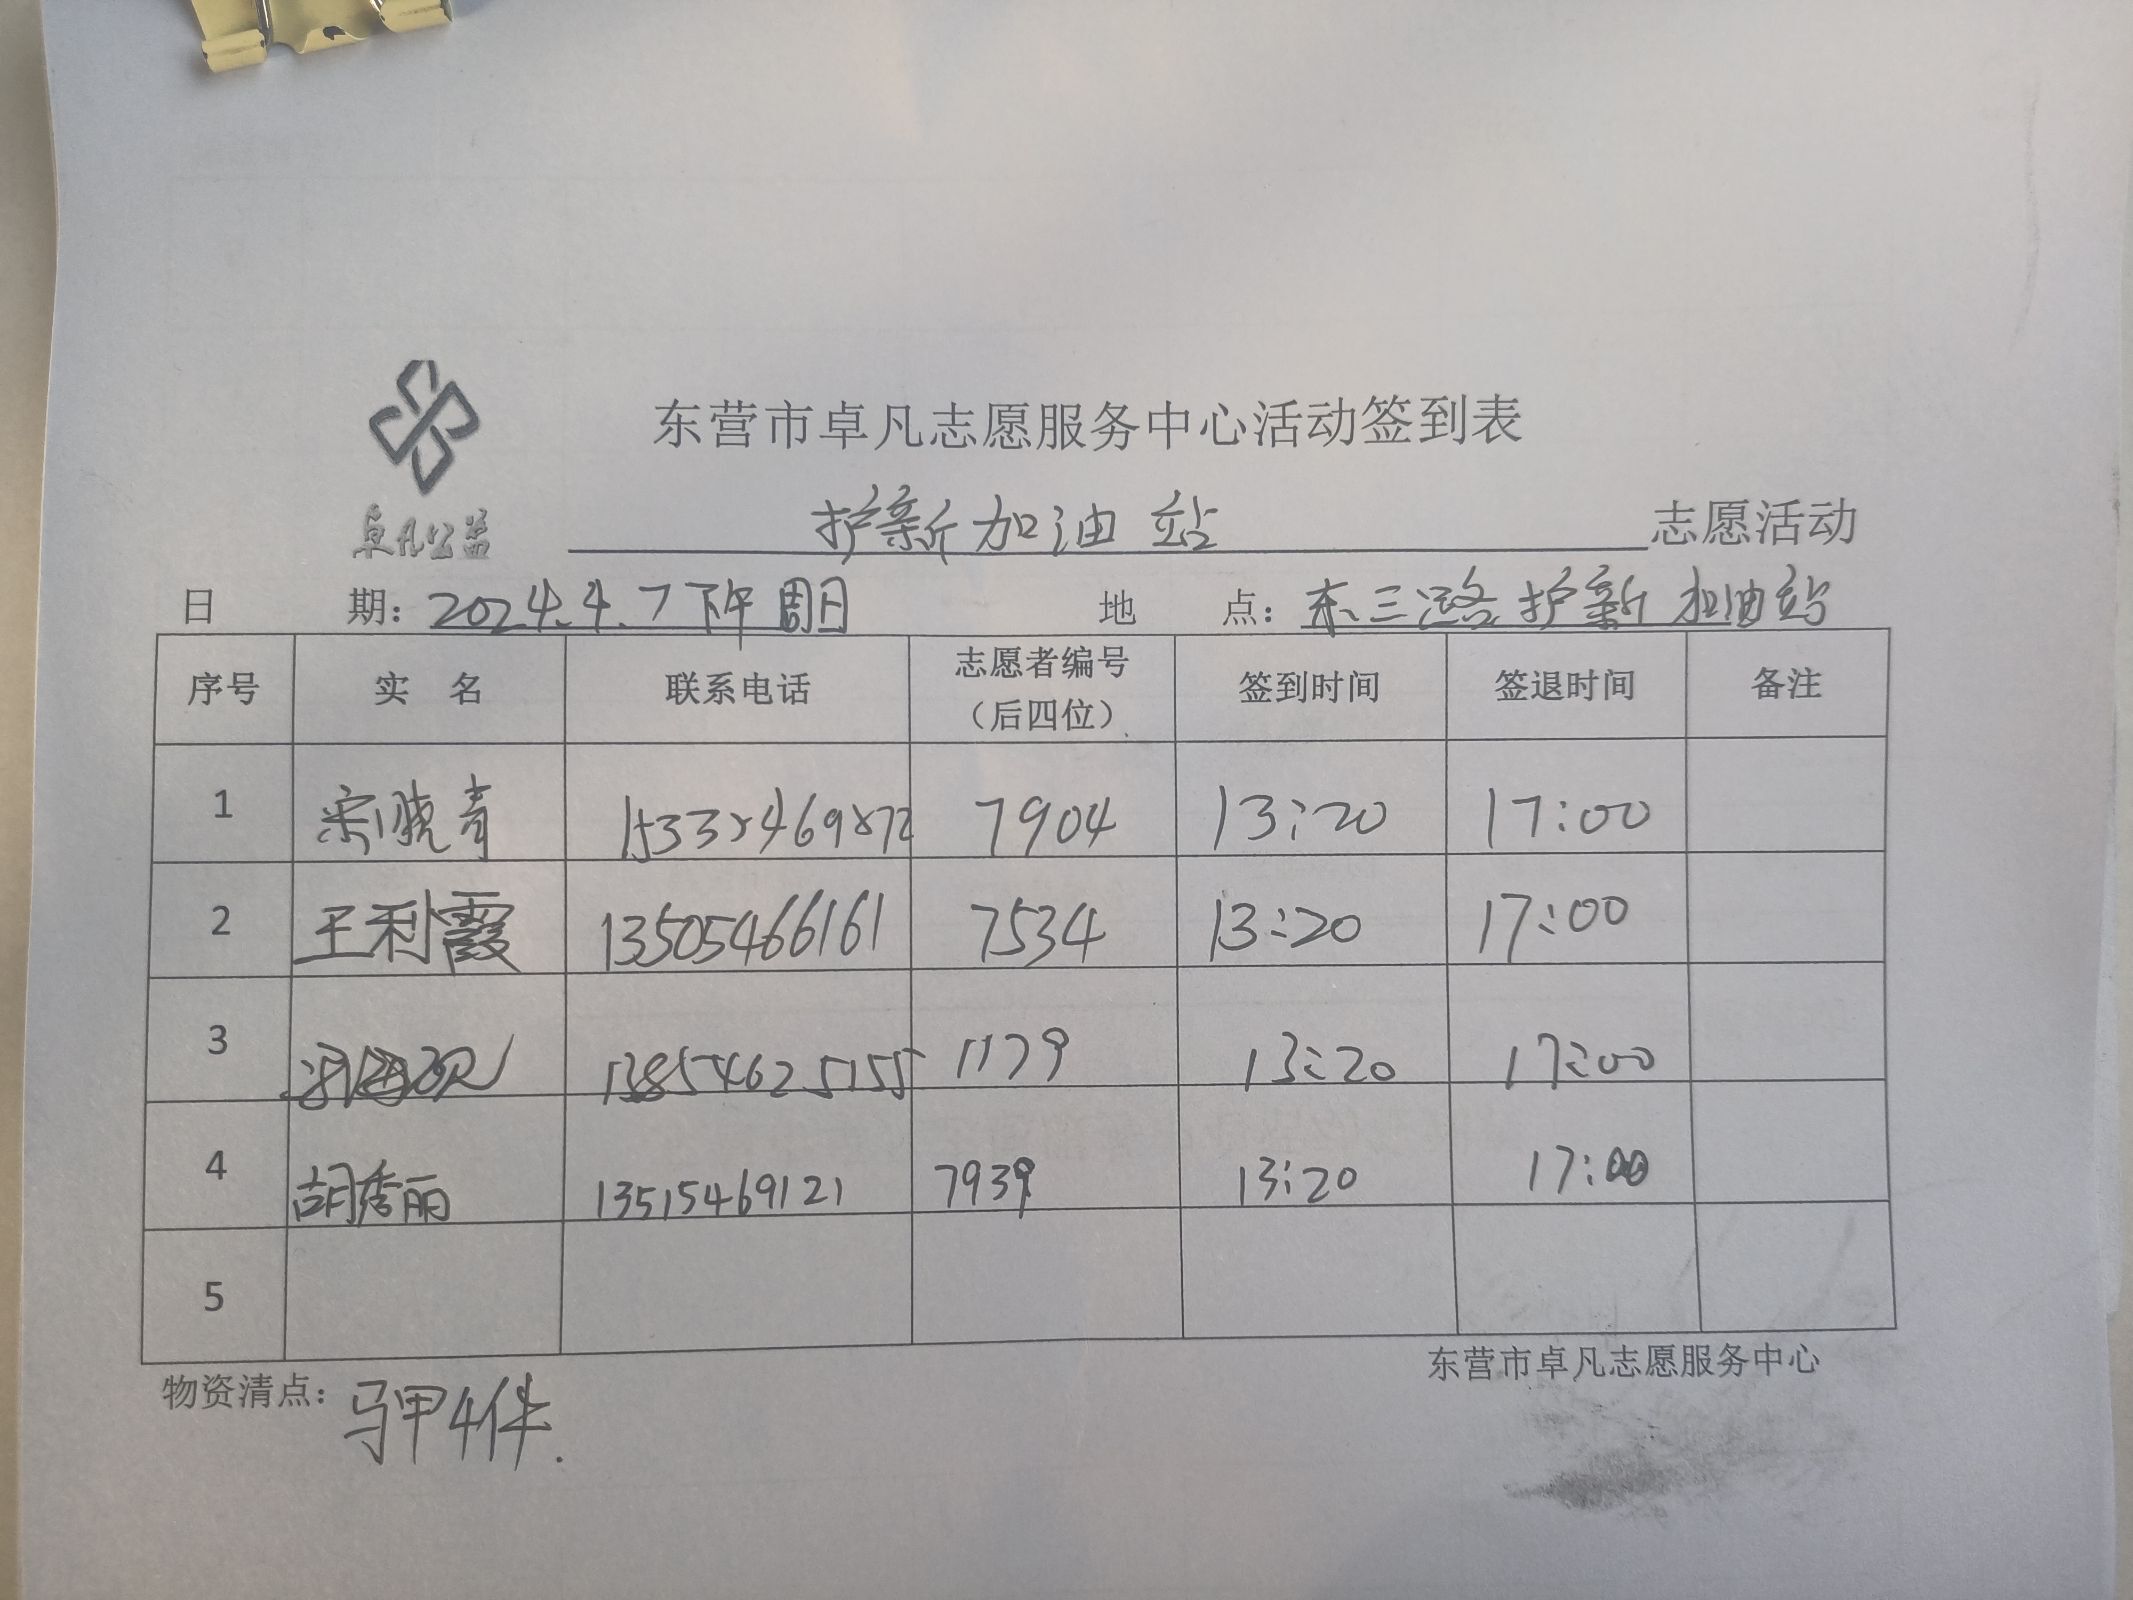 东营市卓凡志愿服务中心活动签到表
卓凡公益
护新加油站 志愿活动
日 期: 2024.4.7下午周日 地 点: 东三路护新加油站
序号 实 名 联系电话 志愿者编号（后四位） 签到时间 签退时间 备注
1 宋晓青 7904 13:20 17:00
2 王利霞 13505466161 7534 13:20 17:00
3 1179 13:20 17:00
4 胡秀丽 13515469121 7939 13:20 17:00
5
东营市卓凡志愿服务中心
物资清点: 马甲4件.